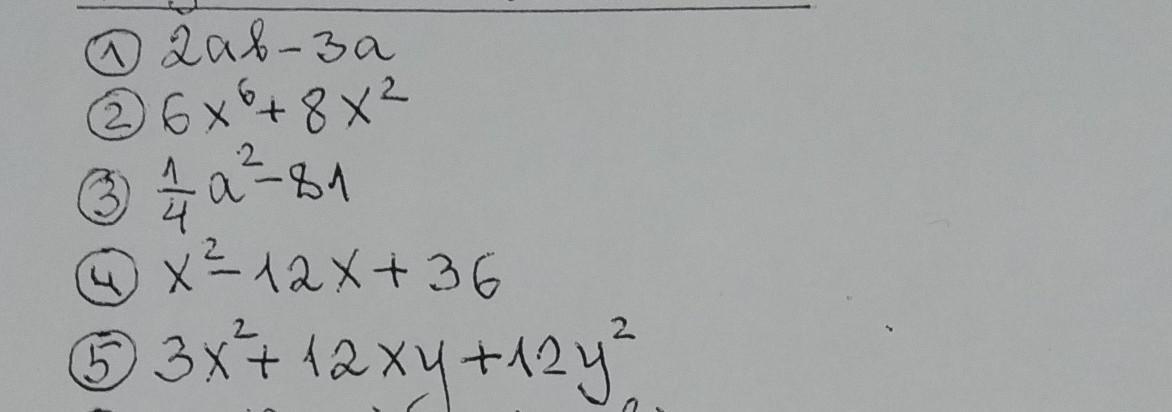 ① 2ab-3a
② 6x⁶+8x²
③ 1/4 a²-81
④ x²-12x+36
⑤ 3x²+12xy+12y²